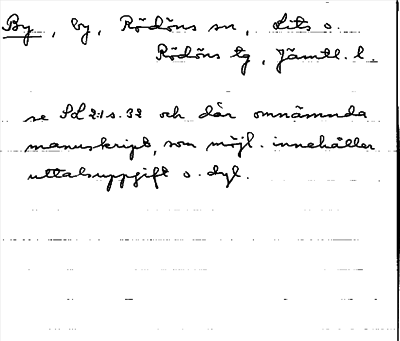 By, by, Rödöns sn, Lits o.
Rödöns tg, Jämtl. l.
se SOL 2:1 s. 32 och där omnämnda
manuskript, som möjl. innehåller
uttalsuppgift o. dyl.